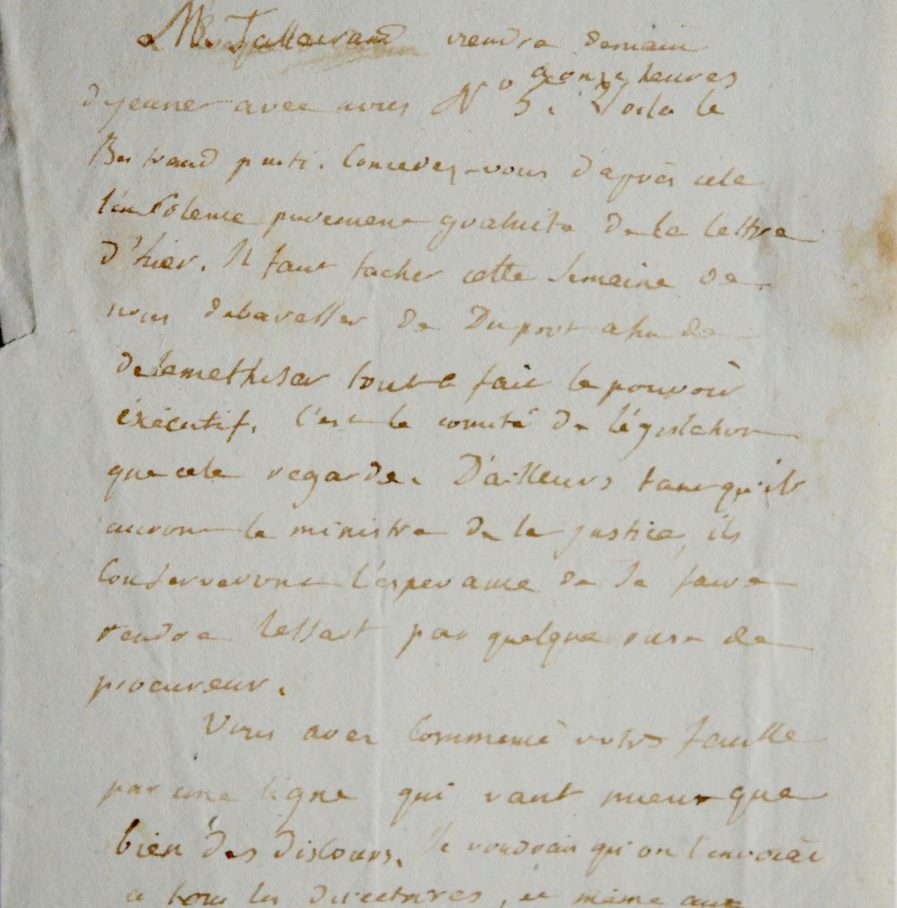 Mr. Tallairand viendra demain
a onze heures
dejeuner avec nous No 5. Voila le
Bertrand parti. Concevez-vous d'après cela
l'insolence purement gratuite de la lettre
d'hier. Il faut tacher cette semaine de
nous debarasser de Duport afin de
tout a fait le pouvoir
éxécutif. C'est le comité de législation
que cela regarde. D'ailleurs tant qu'ils
auront le ministre de la justice, ils
conserveront l'esperance de se faire
rendre Lessart par quelque ruse de
procureur.
Vous avez commencé votre feuille
par une ligne qui vaut mieux que
bien des discours. Je voudrais qu'on l'envoiat
a tous les directoires, et même aux